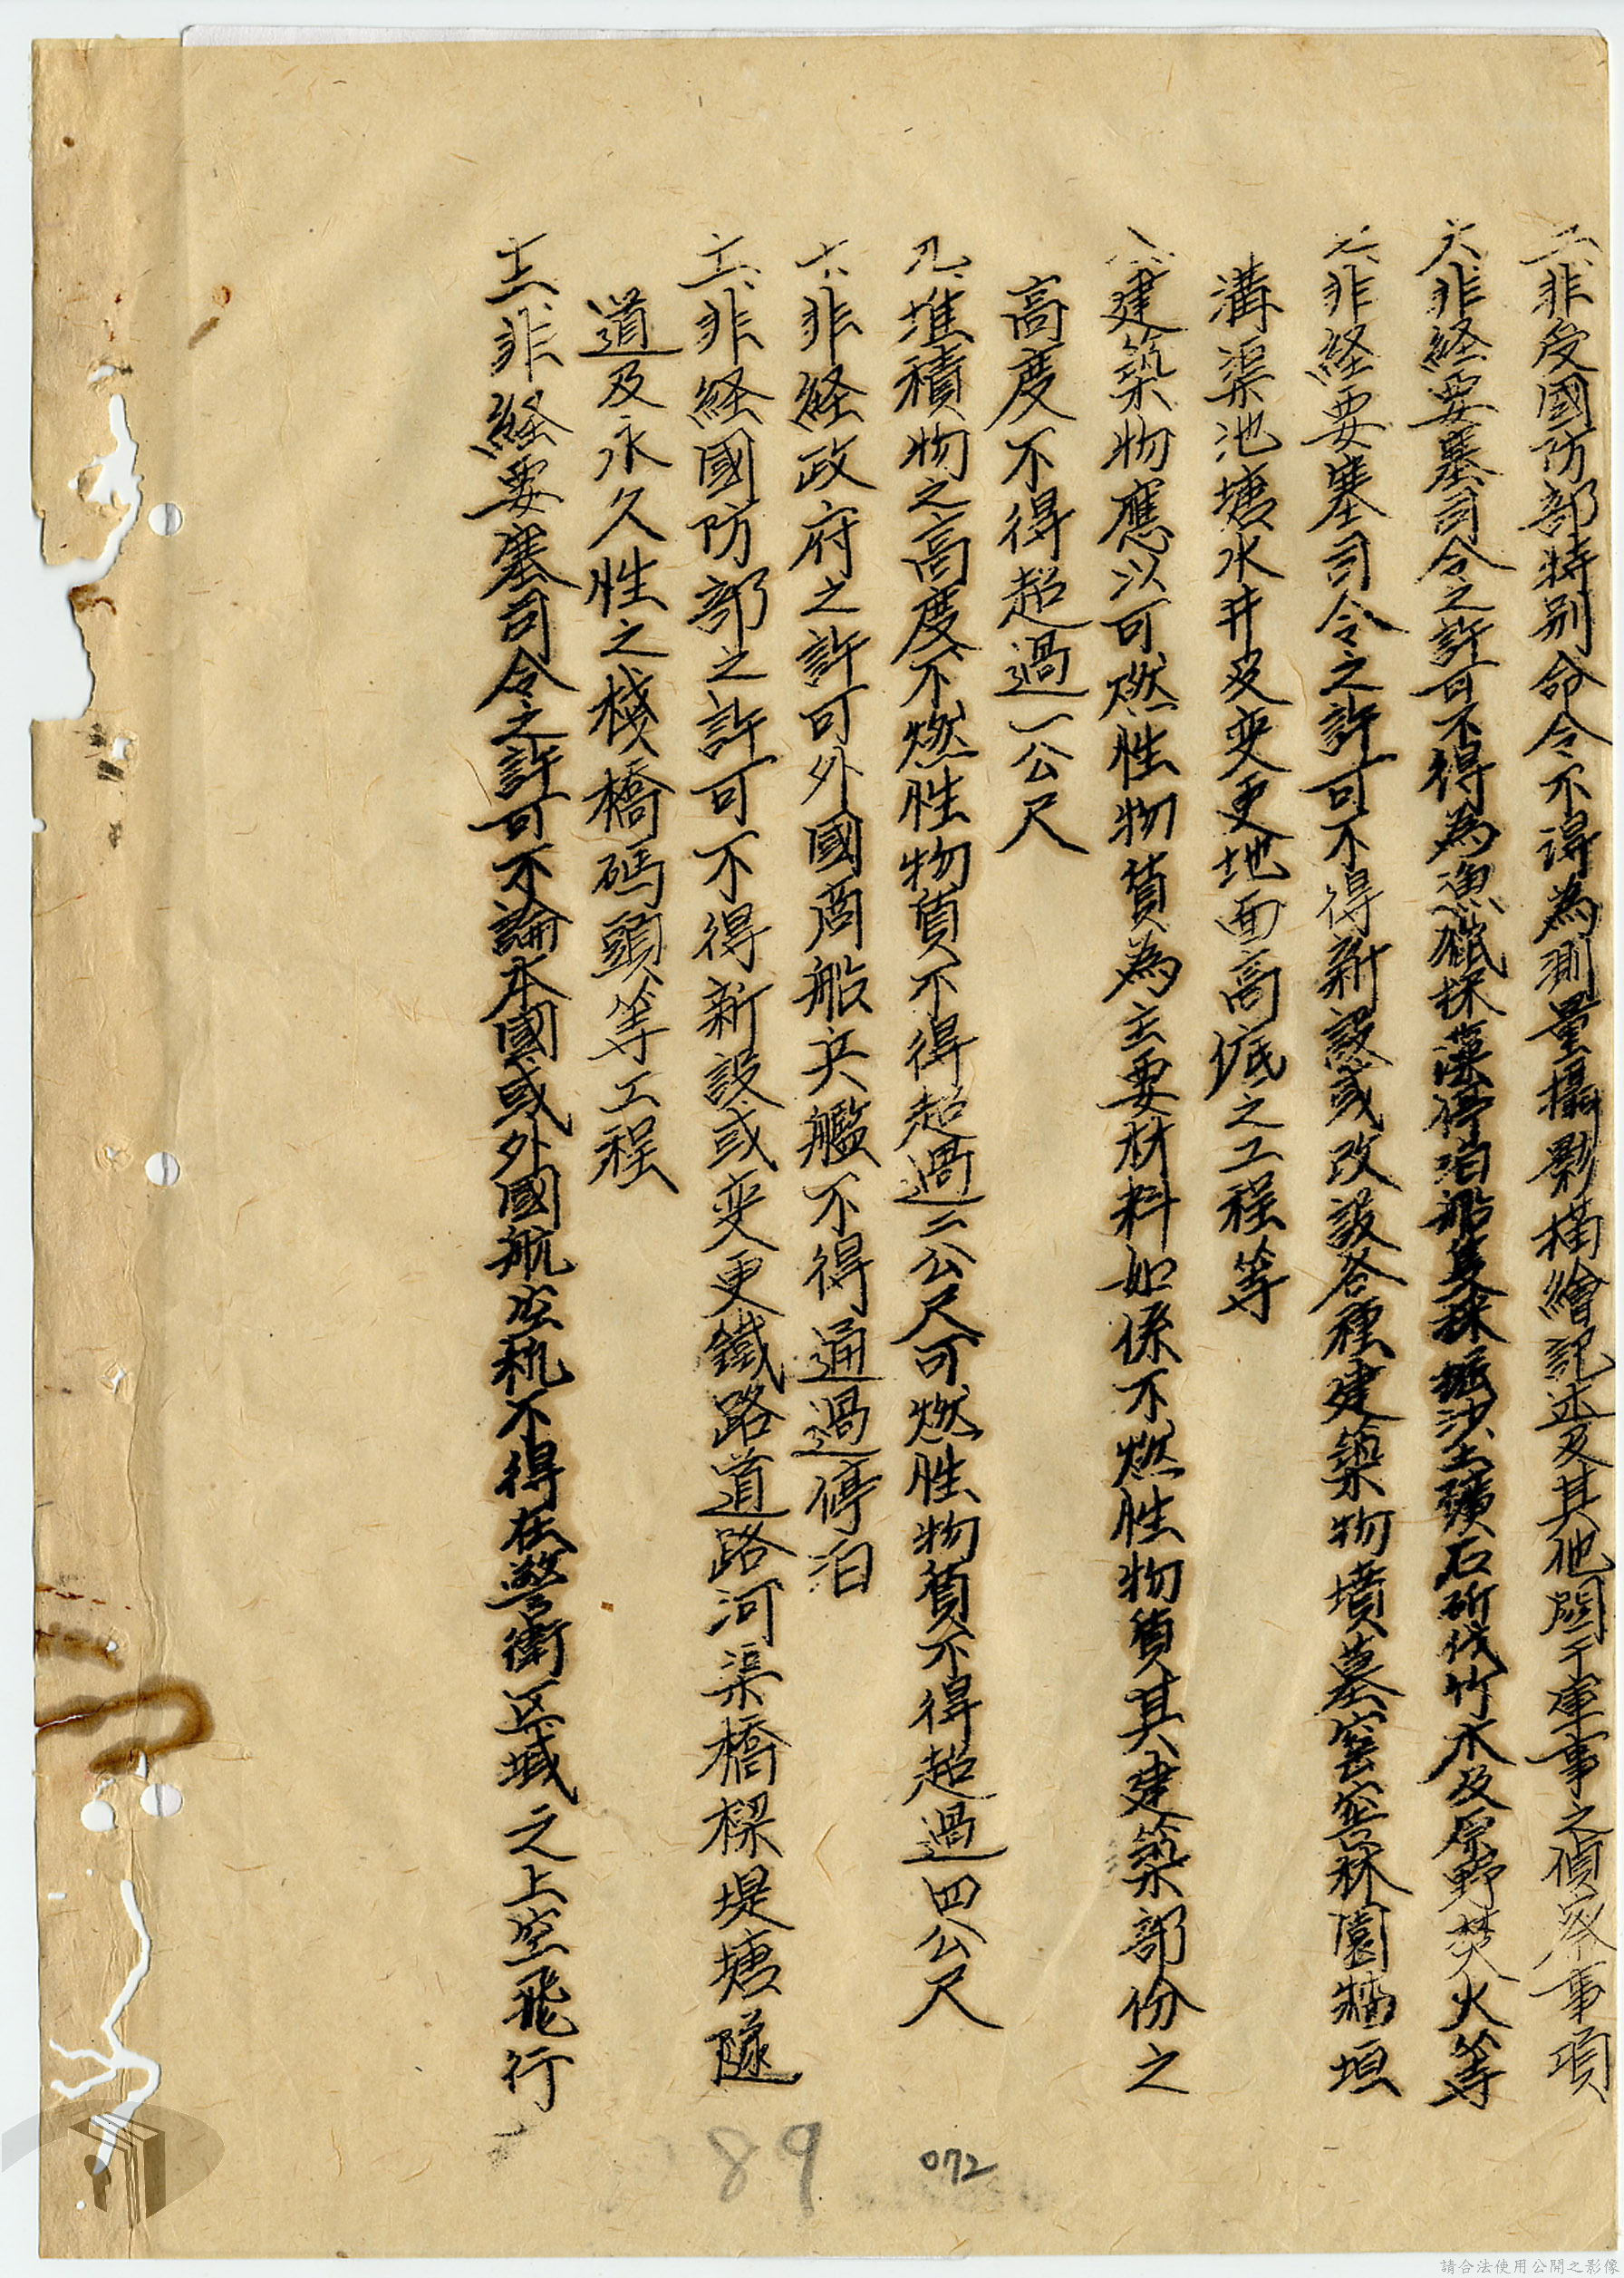 五、非受國防部特別命令不得為測量攝影描繪記述及其他関于軍事之偵察事項
六、非経要塞司令之許可不得為漁獵採藻停泊船隻採掘沙土礦石斫伐竹木及原野焚火等
七、非経要塞司令之許可不得新設或改設各種建築物墳墓窰窖林園牆垣
溝渠池塘水井及变更地面高低之工程等
八、建築物應以可燃性物質為主要材料如係不燃性物質其建築部份之
高度不得超過一公尺
九、堆積物之高度不燃性物質不得超過二公尺可燃性物質不得超過四公尺
十、非経政府之許可外國商船兵艦不得通過停泊
十一、非経國防部之許可不得新設或变更鐵路道路河渠橋樑堤塘隧
道及永久性之棧橋碼頭等工程
十二、非経要塞司令之許可不論本國或外國航空机不得在警衛区域之上空飛行
072
89
請合法使用公開之影像